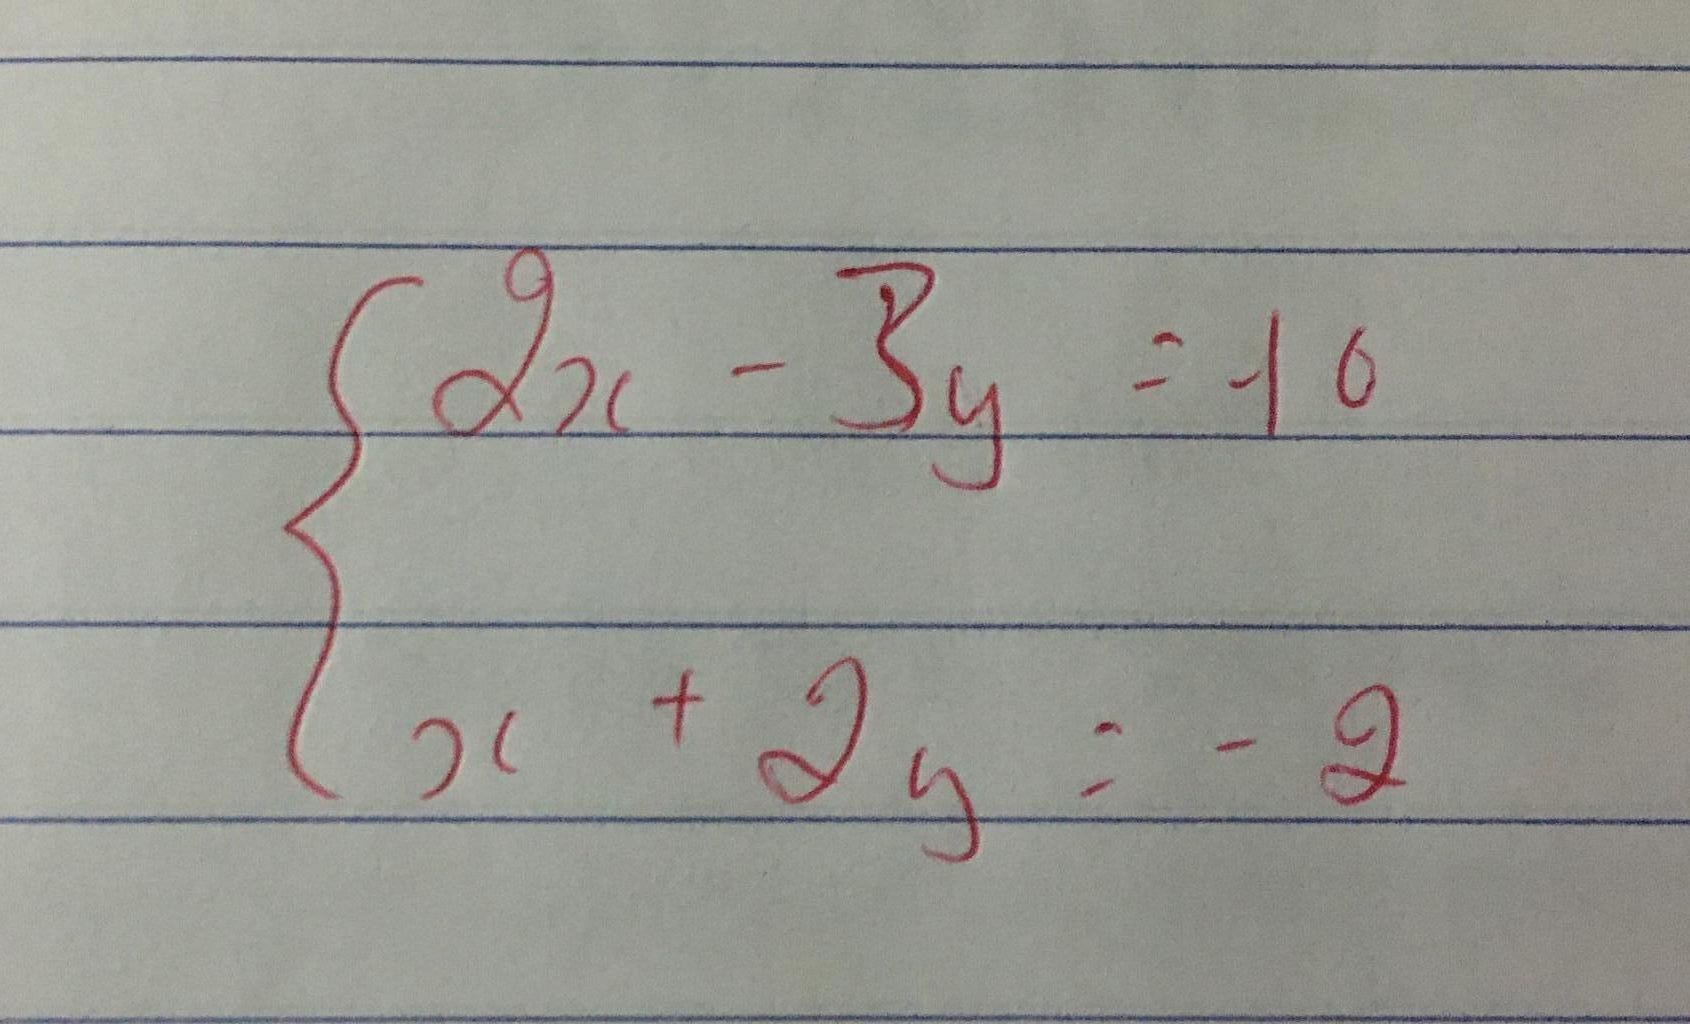 2x - 3y = -10
x + 2y = -2